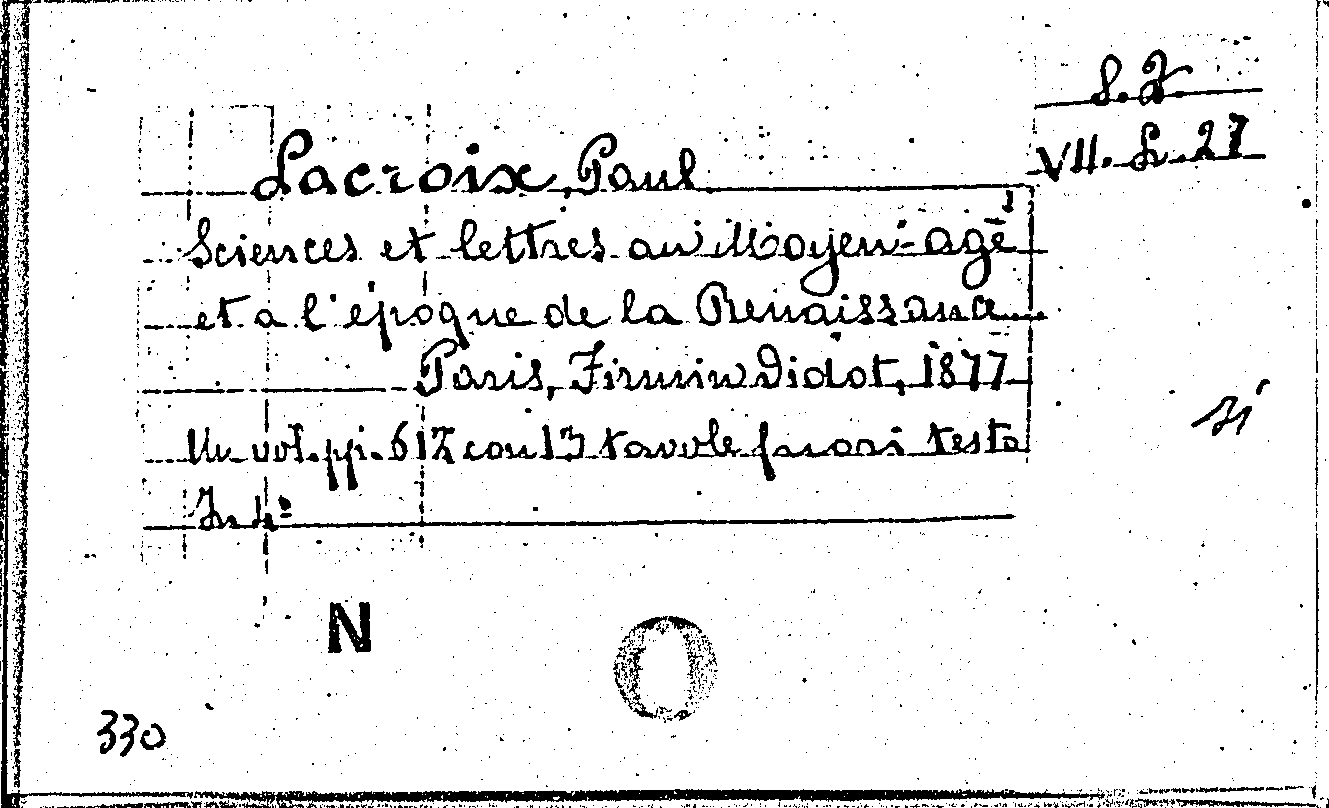 S. Z.
VII. L. 27
Lacroix, Paul
Sciences et lettres au Moyen-age
et a l'époque de la Renaissance.
Paris, Firmin Didot, 1877
Un vol. pp. 612 con 13 tavole fuori testo
In 4º
si
N
330